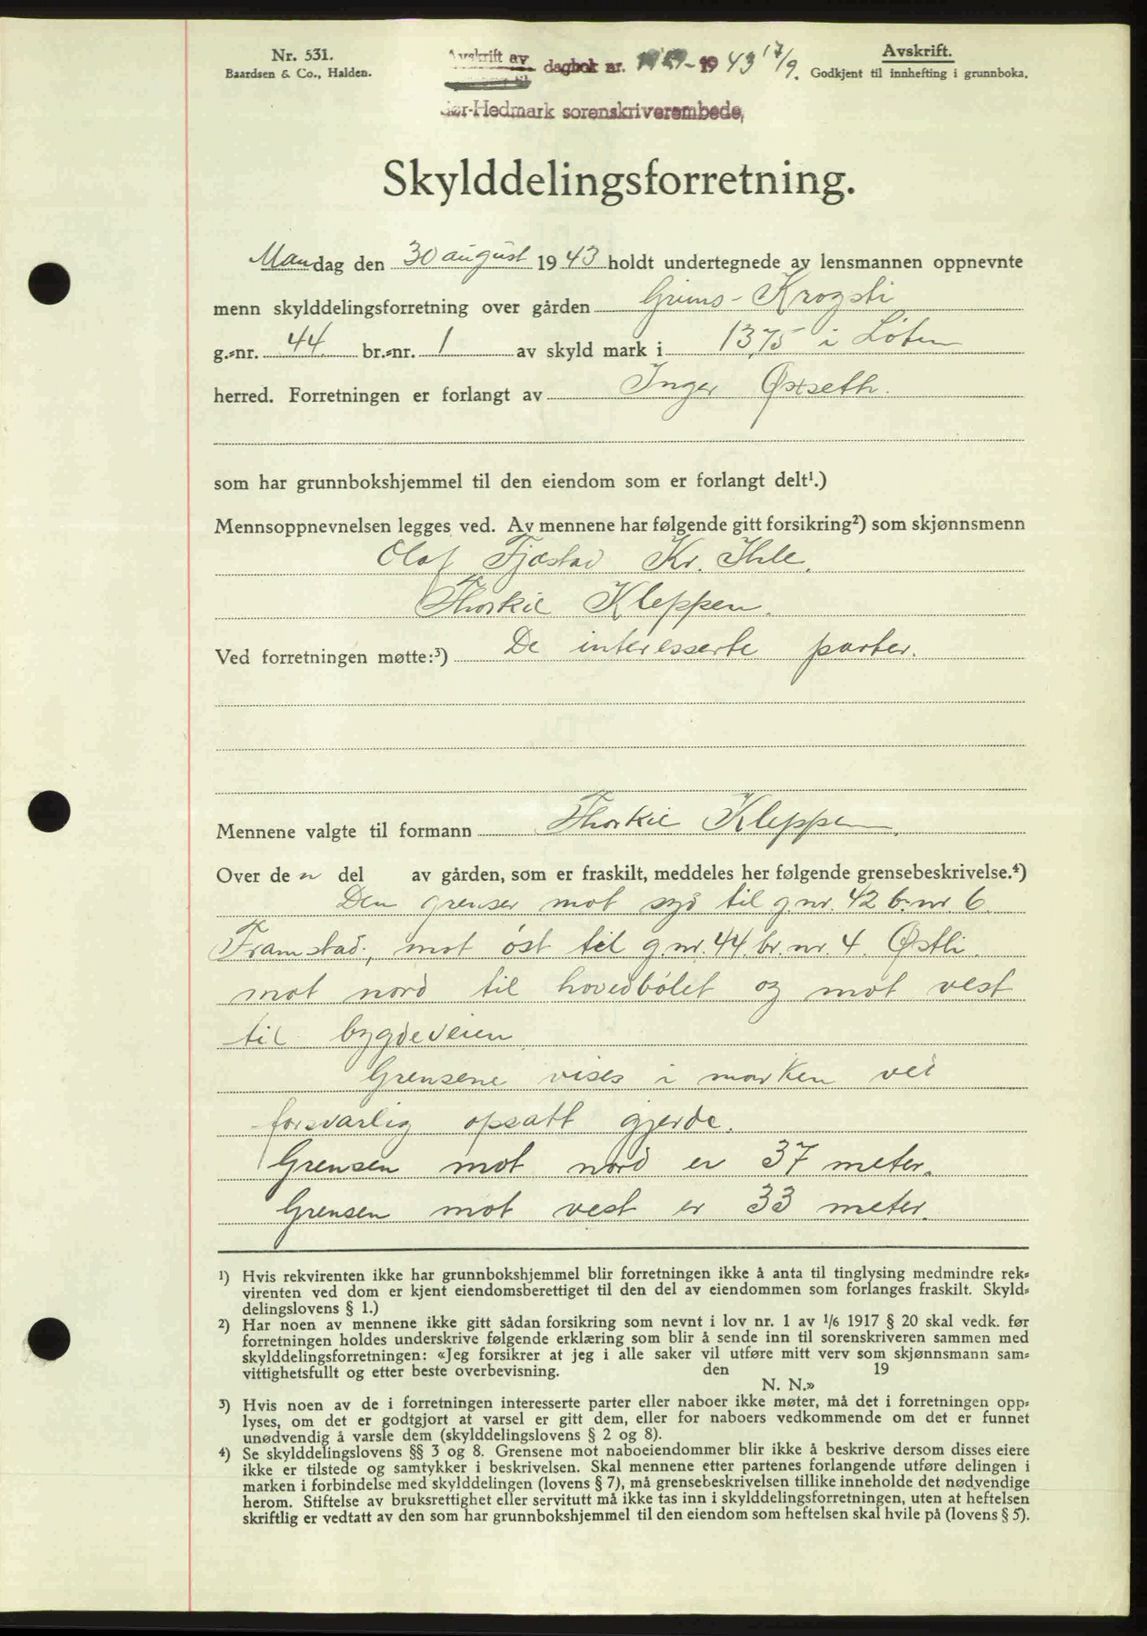 Nr. 531.
Baardsen & Co., Halden.
Avskrift av
dagbok nr. 1943 17/9.
Sør-Hedmark sorenskriverembede,
Avskrift.
Godkjent til innhefting i grunnboka.
Skylddelingsforretning.
Mandag den 30 august 1943 holdt undertegnede av lensmannen oppnevnte
menn skylddelingsforretning over gården Grims-Krogsti
g.-nr. 44. br.-nr. 1 av skyld mark i 13,75 i Løten
herred. Forretningen er forlangt av Inger Øxseth.
som har grunnbokshjemmel til den eiendom som er forlangt delt¹.)
Mennsoppnevnelsen legges ved. Av mennene har følgende gitt forsikring²) som skjønnsmenn
Olaf Fjæstad Kr. Ihle.
Thorkil Kleppen.
Ved forretningen møtte:³) De interesserte parter.
Mennene valgte til formann Thorkil Kleppen.
Over den del av gården, som er fraskilt, meddeles her følgende grensebeskrivelse.⁴)
Den grenser mot syd til g.nr. 42 b.nr. 6.
Framstad, mot øst til g.nr. 44. br.nr. 4. Østli.
mot nord til hovedbølet og mot vest
til bygdeveien.
Grensene vises i marken ved
forsvarlig opsatt gjerde.
Grensen mot nord er 37 meter.
Grensen mot vest er 33 meter.
¹) Hvis rekvirenten ikke har grunnbokshjemmel blir forretningen ikke å anta til tinglysing medmindre rek-
virenten ved dom er kjent eiendomsberettiget til den del av eiendommen som forlanges fraskilt. Skyld-
delingslovens § 1.)
²) Har noen av mennene ikke gitt sådan forsikring som nevnt i lov nr. 1 av 1/6 1917 § 20 skal vedk. før
forretningen holdes underskrive følgende erklæring som blir å sende inn til sorenskriveren sammen med
skylddelingsforretningen: «Jeg forsikrer at jeg i alle saker vil utføre mitt verv som skjønnsmann sam-
vittighetsfullt og etter beste overbevisning. den 19
N. N.»
³) Hvis noen av de i forretningen interesserte parter eller naboer ikke møter, må det i forretningen opp-
lyses, om det er godtgjort at varsel er gitt dem, eller for naboers vedkommende om det er funnet
unødvendig å varsle dem (skylddelingslovens § 2 og 8).
⁴) Se skylddelingslovens §§ 3 og 8. Grensene mot naboeiendommer blir ikke å beskrive dersom disses eiere
ikke er tilstede og samtykker i beskrivelsen. Skal mennene etter partenes forlangende utføre delingen i
marken i forbindelse med skylddelingen (lovens § 7), må grensebeskrivelsen tillike inneholde det nødvendige
herom. Stiftelse av bruksrettighet eller servitutt må ikke tas inn i skylddelingsforretningen, uten at heftelsen
skriftlig er vedtatt av den som har grunnbokshjemmel til den eiendom som heftelsen skal hvile på (lovens § 5).